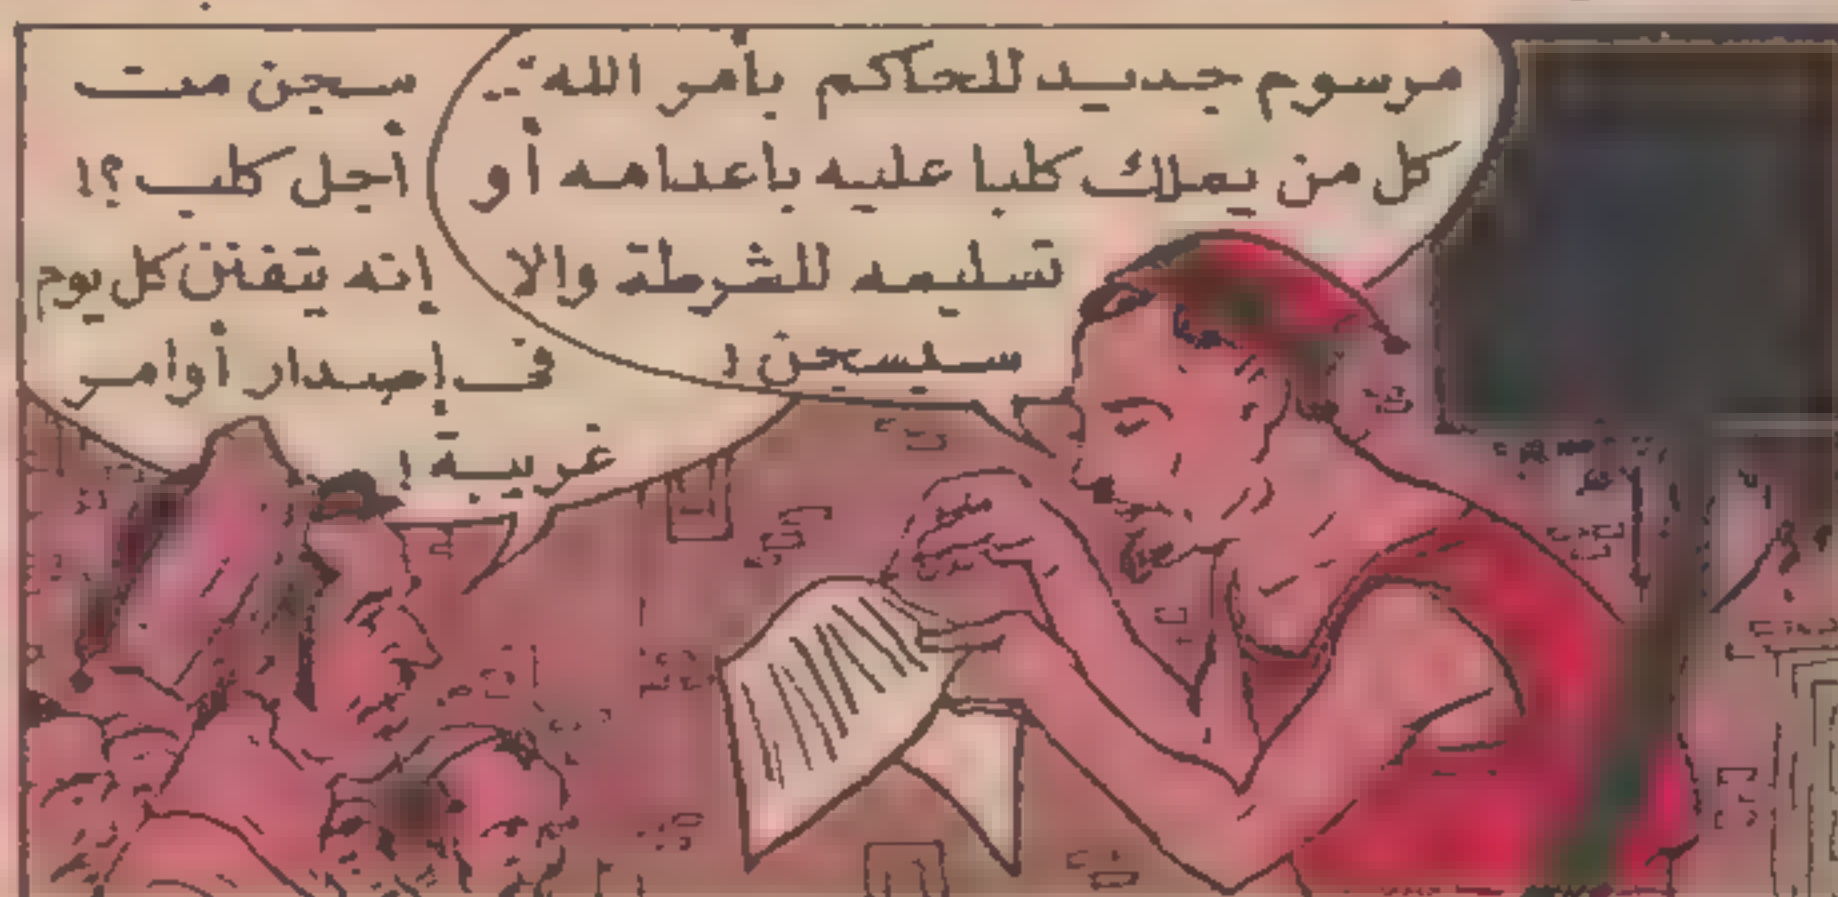 مرسوم جديد للحاكم بأمر الله :
كل من يملك كلبا عليه بإعدامه أو
تسليمه للشرطة وإلا
سيسجن !
سجن من
أجل كلب ؟!
إنه يتفنن كل يوم
في إصدار أوامر
غريبة !